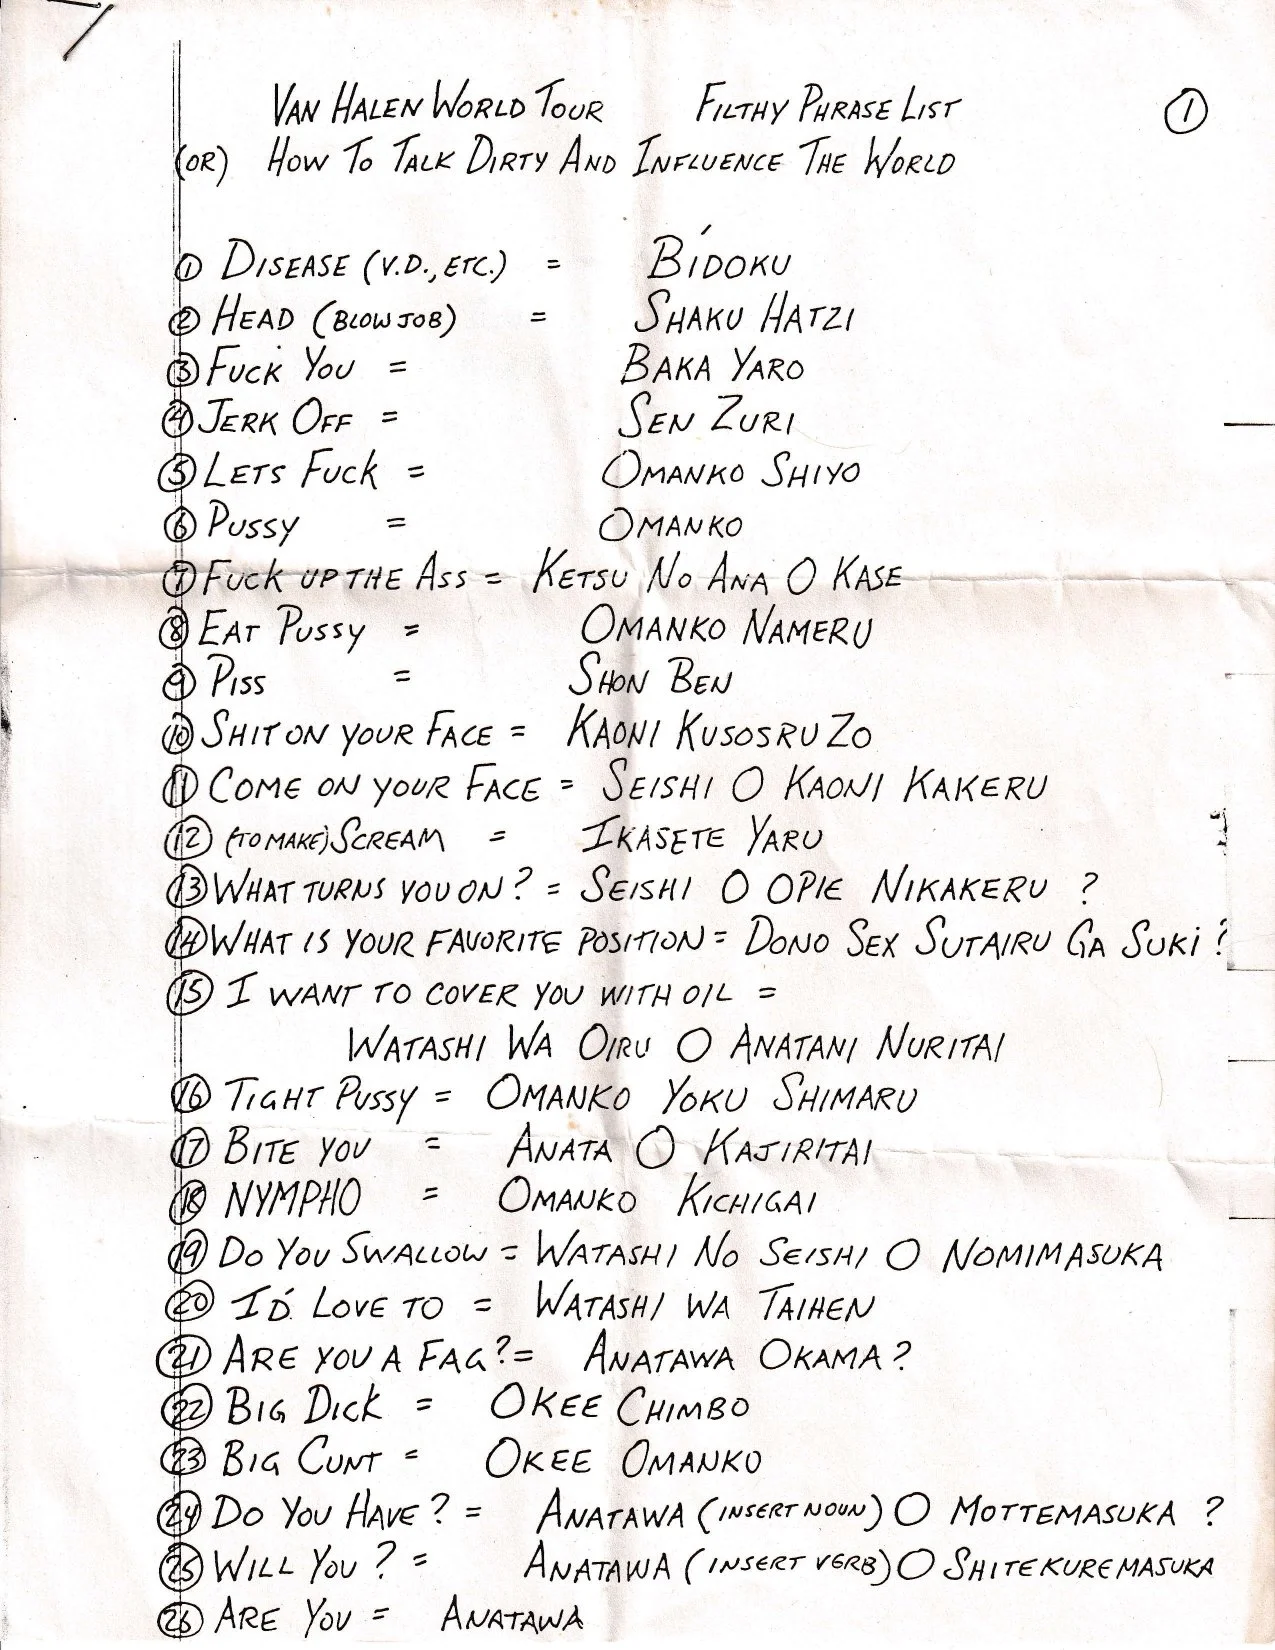 VAN HALEN WORLD TOUR FILTHY PHRASE LIST ①
(OR) HOW TO TALK DIRTY AND INFLUENCE THE WORLD
① DISEASE (V.D., ETC.) = BÍDOKU
② HEAD (BLOW JOB) = SHAKU HATZI
③ FUCK YOU = BAKA YARO
④ JERK OFF = SEN ZURI
⑤ LETS FUCK = OMANKO SHIYO
⑥ PUSSY = OMANKO
⑦ FUCK UP THE ASS = KETSU NO ANA O KASE
⑧ EAT PUSSY = OMANKO NAMERU
⑨ PISS = SHON BEN
⑩ SHIT ON YOUR FACE = KAONI KUSOSRU ZO
⑪ COME ON YOUR FACE = SEISHI O KAONI KAKERU
⑫ (TO MAKE) SCREAM = IKASETE YARU
⑬ WHAT TURNS YOU ON? = SEISHI O OPIE NIKAKERU ?
⑭ WHAT IS YOUR FAVORITE POSITION = DONO SEX SUTAIRU GA SUKI ?
⑮ I WANT TO COVER YOU WITH OIL =
WATASHI WA OIRU O ANATANI NURITAI
⑯ TIGHT PUSSY = OMANKO YOKU SHIMARU
⑰ BITE YOU = ANATA O KAJIRITAI
⑱ NYMPHO = OMANKO KICHIGAI
⑲ DO YOU SWALLOW = WATASHI NO SEISHI O NOMIMASUKA
⑳ I'D LOVE TO = WATASHI WA TAIHEN
㉑ ARE YOU A FAG? = ANATAWA OKAMA?
㉒ BIG DICK = OKEE CHIMBO
㉓ BIG CUNT = OKEE OMANKO
㉔ DO YOU HAVE? = ANATAWA (INSERT NOUN) O MOTTEMASUKA ?
㉕ WILL YOU ? = ANATAWA (INSERT VERB) O SHITEKUREMASUKA
㉖ ARE YOU = ANATAWA